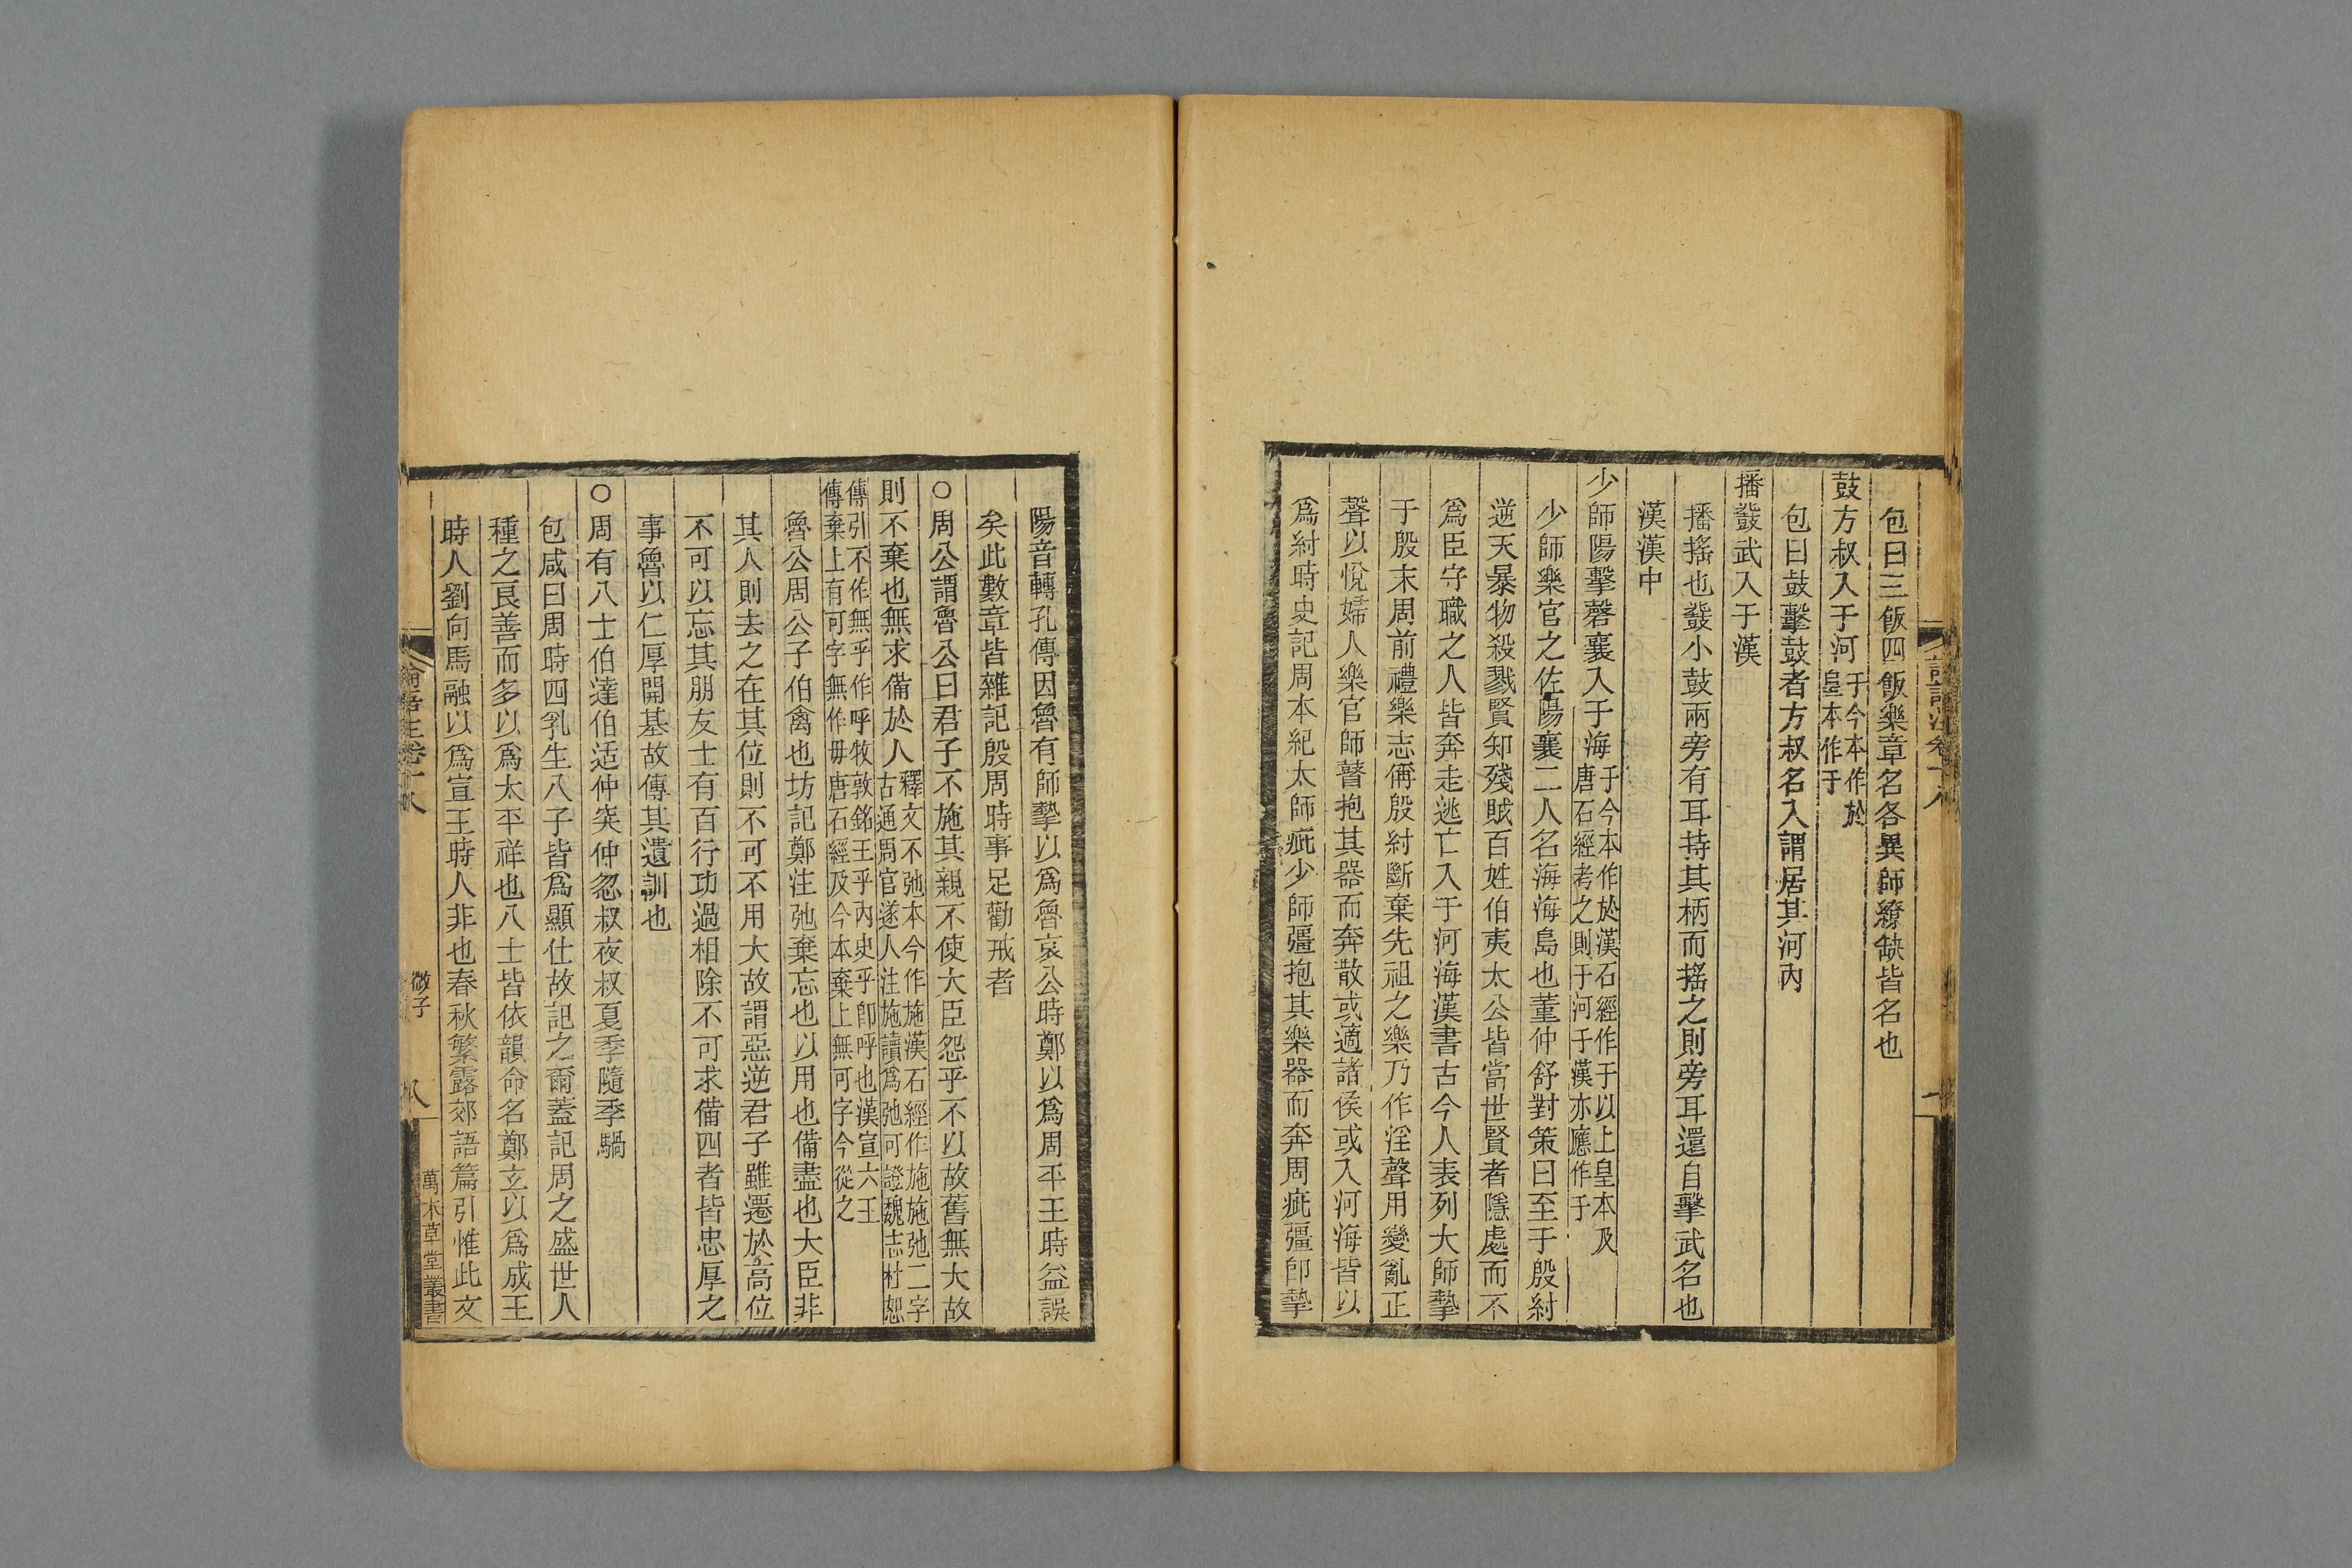 包曰三飯四飯樂章名各異師繚缺皆名也
鼓方叔入于河于今本作於皇本作于
包曰鼓擊鼓者方叔名入謂居其河內
播鼗武入于漢
播搖也鼗小鼓兩旁有耳持其柄而搖之則旁耳還自擊武名也
漢漢中
少師陽擊磬襄入于海于今本作於漢石經作于以上皇本及唐石經考之則于河于漢亦應作于
少師樂官之佐陽襄二人名海海島也董仲舒對策曰至于殷紂
逆天暴物殺戮賢知殘賊百姓伯夷太公皆當世賢者隱處而不
為臣守職之人皆奔走逃亡入于河海漢書古今人表列大師摯
于殷末周前禮樂志偁殷紂斷棄先祖之樂乃作淫聲用變亂正
聲以悅婦人樂官師瞽抱其器而奔散或適諸侯或入河海皆以
為紂時史記周本紀太師疵少師彊抱其樂器而奔周疵彊即摯
陽音轉孔傳因魯有師摯以為魯哀公時鄭以為周平王時益誤
矣此數章皆雜記殷周時事足勸戒者
○周公謂魯公曰君子不施其親不使大臣怨乎不以故舊無大故
則不棄也無求備於人釋文不弛本今作施漢石經作施施弛二字古通周官遂人注施讀為弛可證魏志杜恕
傳引不作無乎作呼牧敦銘王乎內史乎即呼也漢宣六王傳棄上有可字無作毋唐石經及今本棄上無可字今從之
魯公周公子伯禽也坊記鄭注弛棄忘也以用也備盡也大臣非
其人則去之在其位則不可不用大故謂惡逆君子雖遷於高位
不可以忘其朋友士有百行功過相除不可求備四者皆忠厚之
事魯以仁厚開基故傳其遺訓也
○周有八士伯達伯适仲突仲忽叔夜叔夏季隨季騧
包咸曰周時四乳生八子皆為顯仕故記之爾蓋記周之盛世人
種之良善而多以為太平祥也八士皆依韻命名鄭玄以為成王
時人劉向馬融以為宣王時人非也春秋繁露郊語篇引惟此文
論語注卷十八
微子
八
萬木草堂叢書